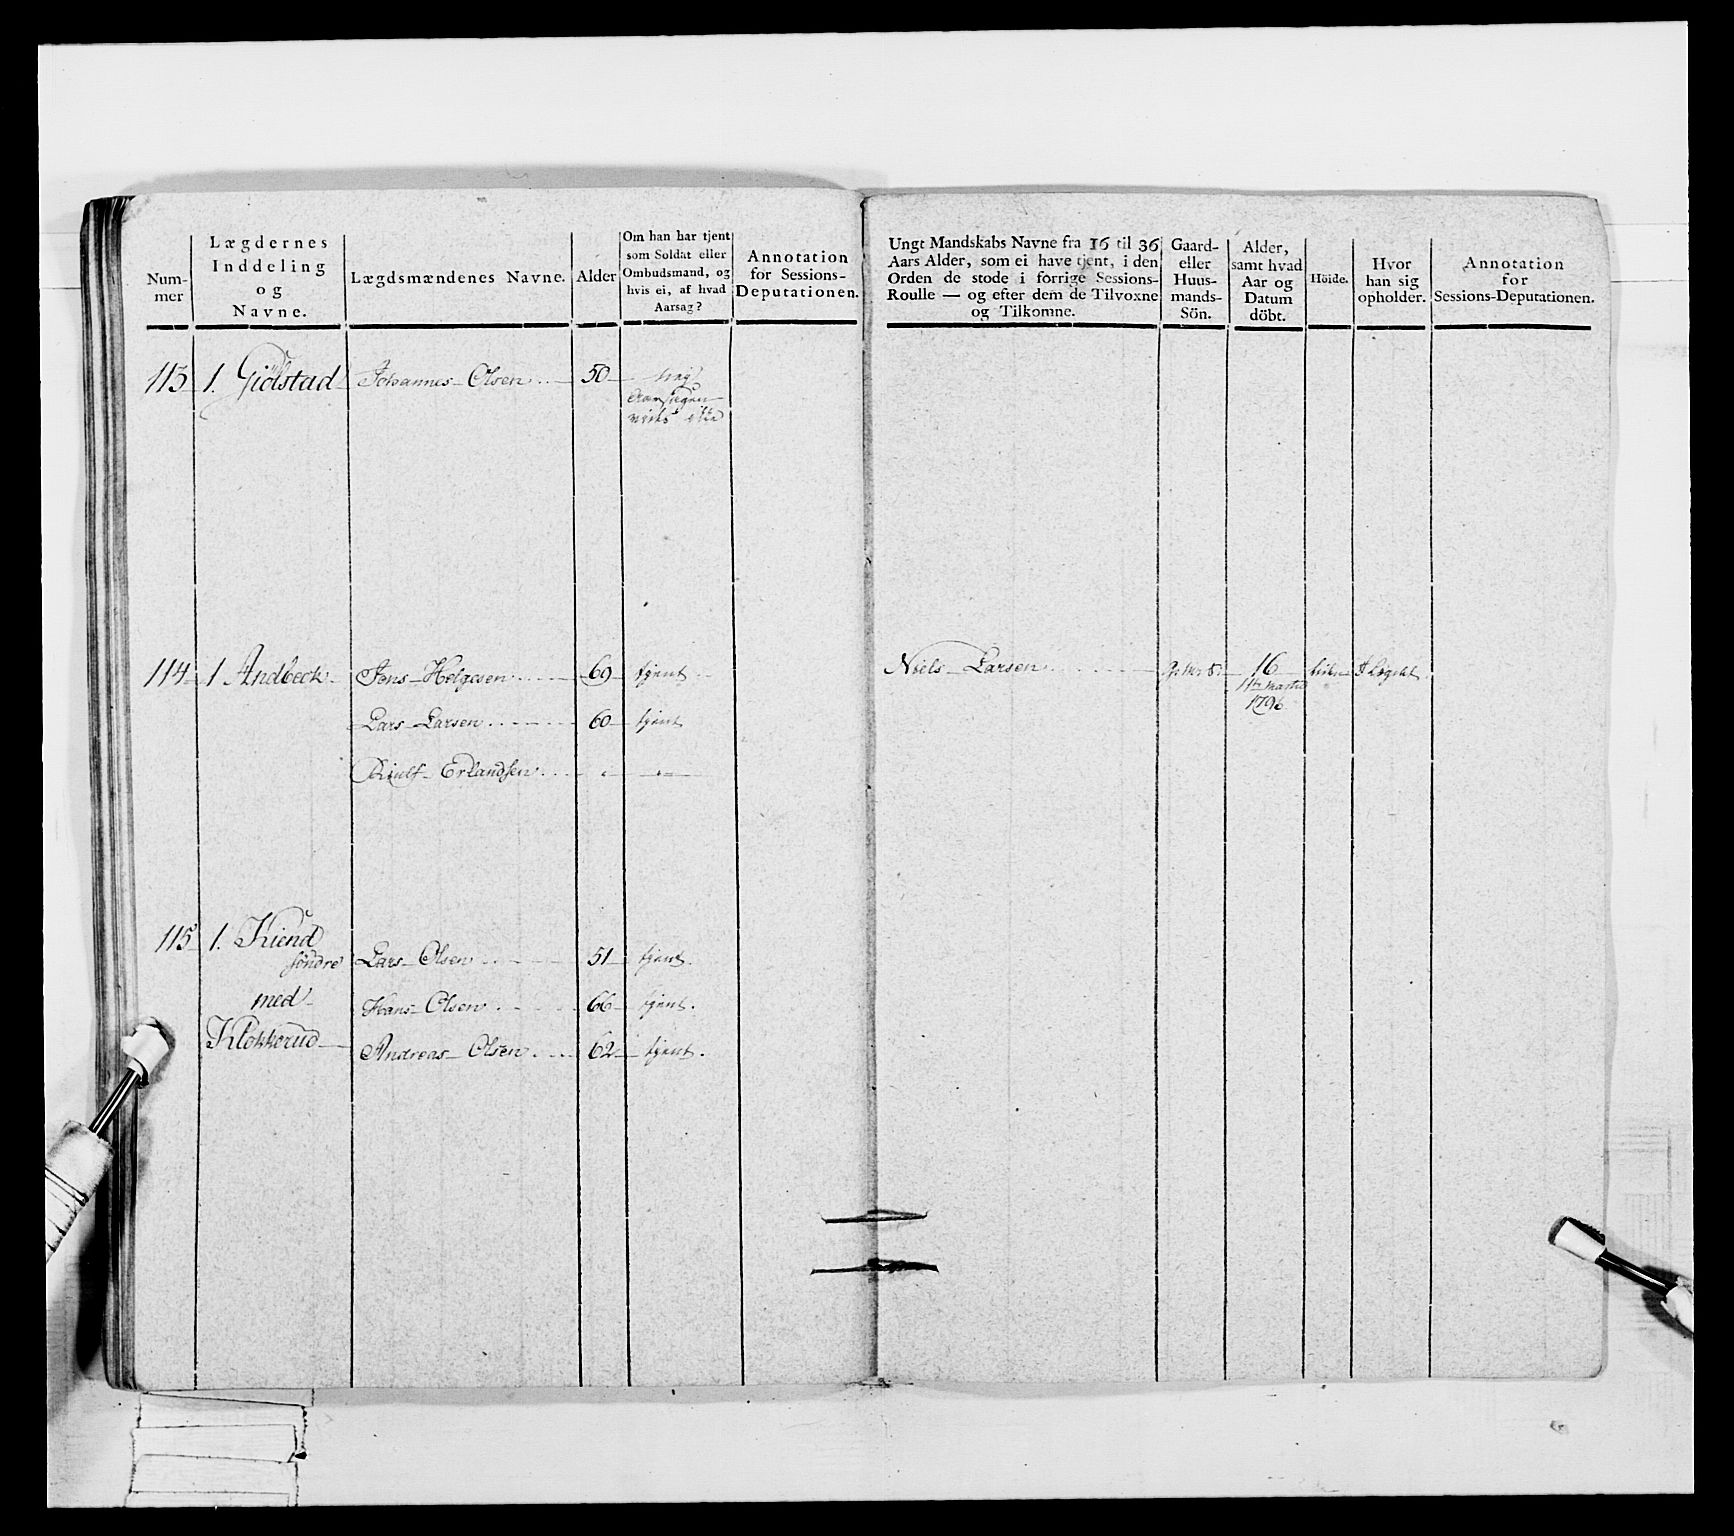 Num-
mer
Lægdernes
Inddeling
og
Navne.
Lægdsmændenes Navne.
Alder
Om han har tjent
som Soldat eller
Ombudsmand, og
hvis ei, af hvad
Aarsag?
Annotation
for Sessions-
Deputationen.
113 1. Giölstad Johannes Olsen 50
Aarsagen
114 1 Andbeck Jens Helgesen 69 tjent
Lars Larsen 60 tjent
Erlandsen
115 1. Kiend
söndre Lars Olsen 51 tjent.
med Hans Olsen 66 tjent.
Klokkerud Andreas Olsen 62 tjent.
Ungt Mandskabs Navne fra 16 til 36
Aars Alder, som ei have tjent, i den
Orden de stode i forrige Sessions-
Roulle — og efter dem de Tilvoxne
og Tilkomne.
Gaard-
eller
Huus-
mands-
Sön.
Alder,
samt hvad
Aar og
Datum
döbt.
Höide.
Hvor
han sig
opholder.
Annotation
for
Sessions-Deputationen.
Niels Larsen 16 liden I Lægdet.
1796